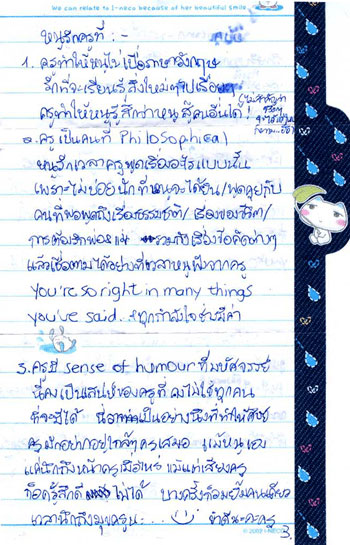 We can relate to I-neco because of her beautiful smile
หนูรักครูที่ : -
1. ครูทำให้หนูไม่เบื่อภาษาอังกฤษ
รักที่จะเรียนรู้สิ่งใหม่ๆไปเรื่อยๆ
ครูทำให้หนูรู้สึกว่าหนูสู้คนอื่นได้!
2. ครูเป็นคนที่ Philosophical
หนูรักเวลาครูพูดเรื่องอะไรแบบนั้น
เพราะไม่บ่อยนักที่หนูจะได้ยิน/พูดคุยกับ
คนที่พอพูดถึงเรื่องธรรมชาติ/เรื่องของชีวิต/
การต้องรักพ่อแม่ รวมถึงเรื่องข้อคิดต่างๆ
แล้วเชื่อตามได้อย่างที่เวลาหนูฟังจากครู
You're so right in many things
you've said.
3. ครูมี sense of humour ที่มหัศจรรย์
นี่คงเป็นเสน่ห์ของครูที่คงไม่ใช่ทุกคน
ที่จะมีได้ เป็นอย่างนึงที่ทำให้ศิษย์
ครูมักอยากอยู่ใกล้ๆครูเสมอ แม้หนูเอง
แค่นึกถึงหน้าครูเมื่อไหร่ แม้แต่เสียงครู
ก็อดรู้สึกดีไม่ได้ บางครั้งก็อมยิ้มคนเดียว
เวลานึกถึงมุขครูน: . . .
3.